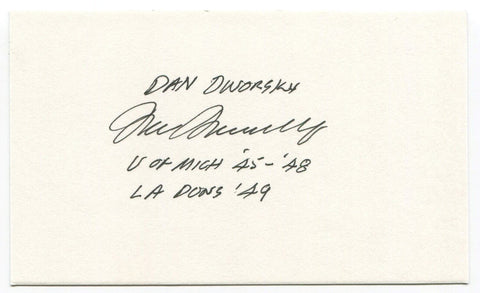 DAN DWORSKY
Dan Dworsky
U OF MICH '45-'48
LA DONS '49